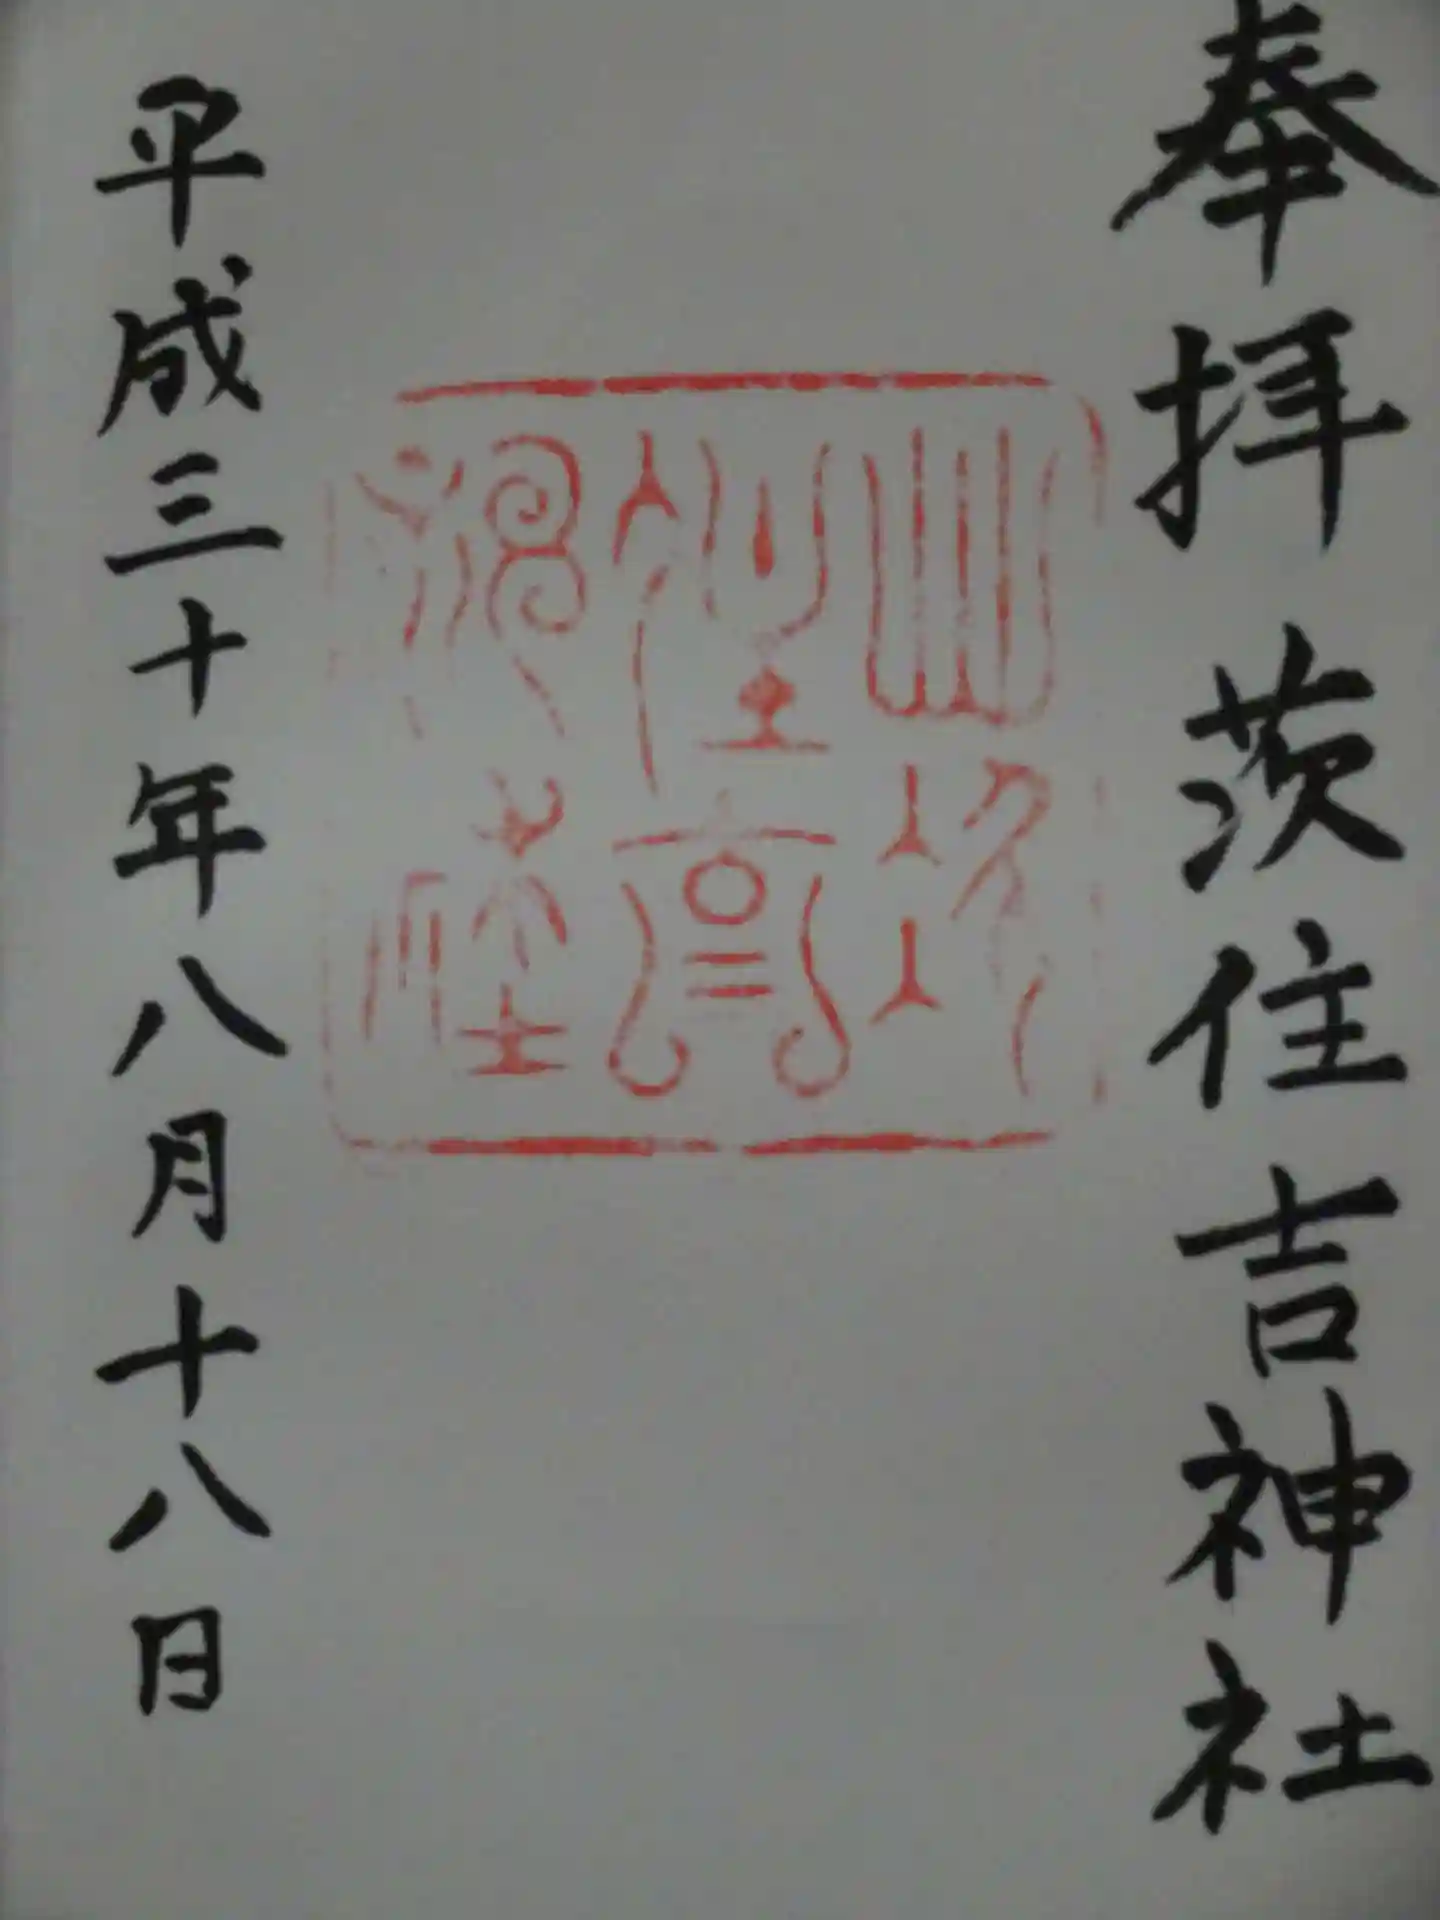 奉拝 茨住吉神社
平成三十年八月十八日